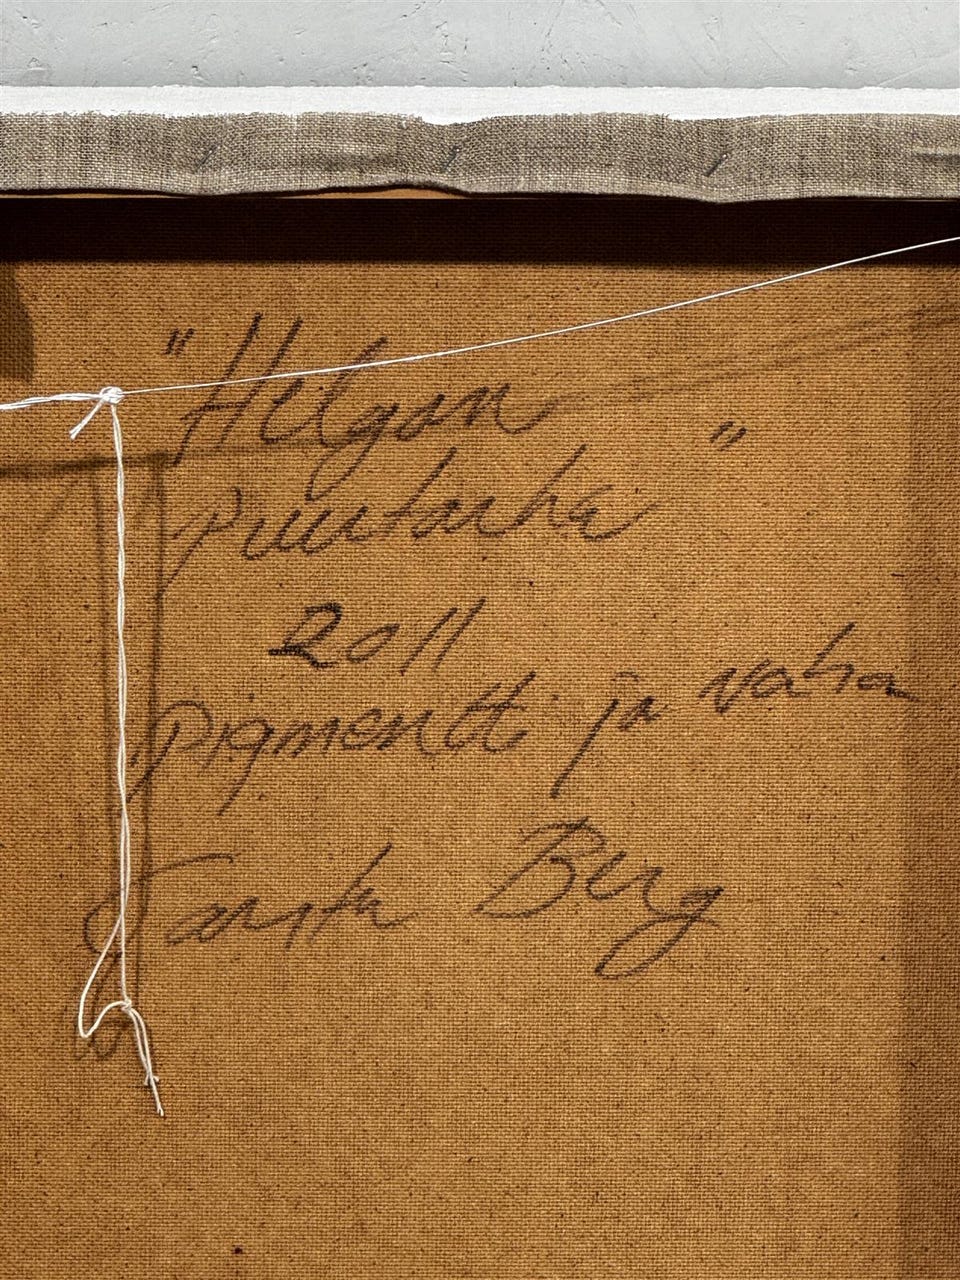 "Helgan
puutarha"
2011
pigmentti ja vaha
Berg